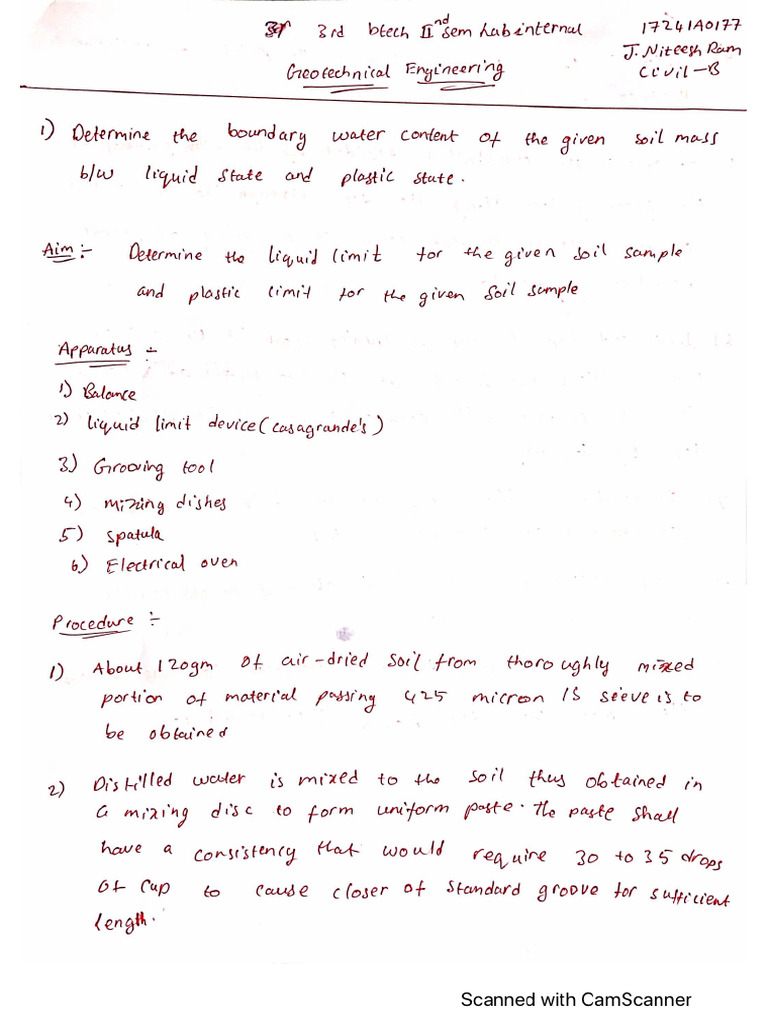 3rd btech II nd sem Lab internal 17241A0177
J. Niteesh Ram
Geotechnical Engineering Civil-B
1) Determine the boundary water content of the given soil mass
b/w liquid state and plastic state.
Aim:- Determine the liquid limit for the given soil sample
and plastic limit for the given soil sample
Apparatus :-
1) Balance
2) liquid limit device (casagrande's)
3) Grooving tool
4) mixing dishes
5) Spatula
6) Electrical oven
Procedure :-
1) About 120gm of air-dried soil from thoroughly mixed
portion of material passing 425 micron IS seeve is to
be obtained
2) Distilled water is mixed to the soil thus obtained in
a mixing disc to form uniform paste. The paste shall
have a consistency that would require 30 to 35 drops
of cup to cause closer of standard groove for sufficient
length.
Scanned with CamScanner